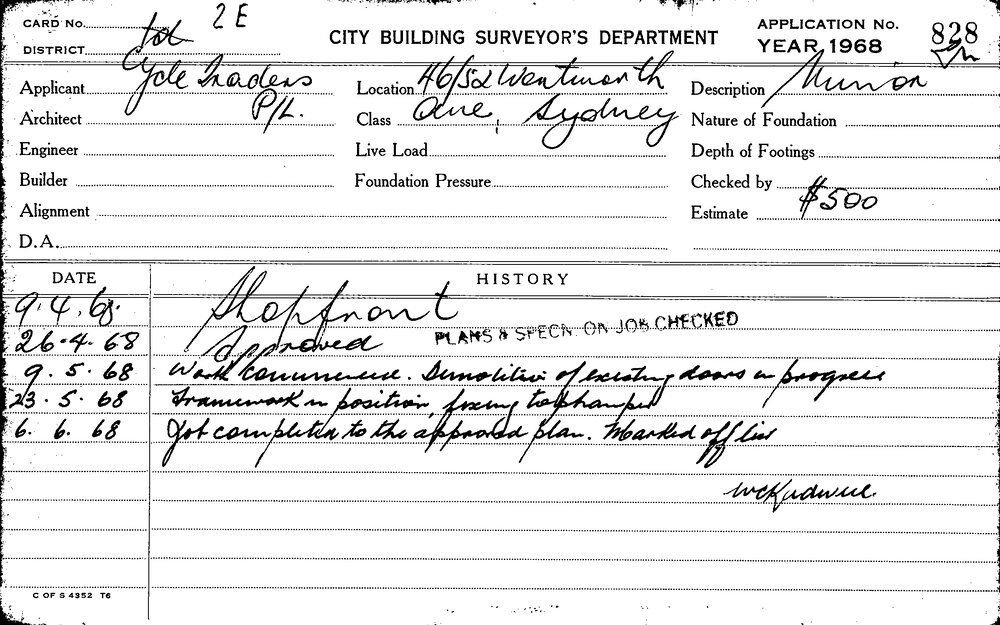 CARD No. 2E
DISTRICT
CITY BUILDING SURVEYOR'S DEPARTMENT
APPLICATION No. 828
YEAR 1968
Applicant Cycle Traders P/L.
Location 46/52 Wentworth Ave, Sydney
Description Minor
Architect
Class
Nature of Foundation
Engineer
Live Load
Depth of Footings
Builder
Foundation Pressure
Checked by
Alignment
Estimate $500
D.A.
DATE HISTORY
9.4.68. Shopfront
26.4.68 Approved PLANS & SPECN. ON JOB CHECKED
9.5.68 Work commenced. Demolition of existing doors in progress
23.5.68 Framework in position, fixing
6.6.68 Job completed to the approved plan. Marked off list
C OF S 4352 T6